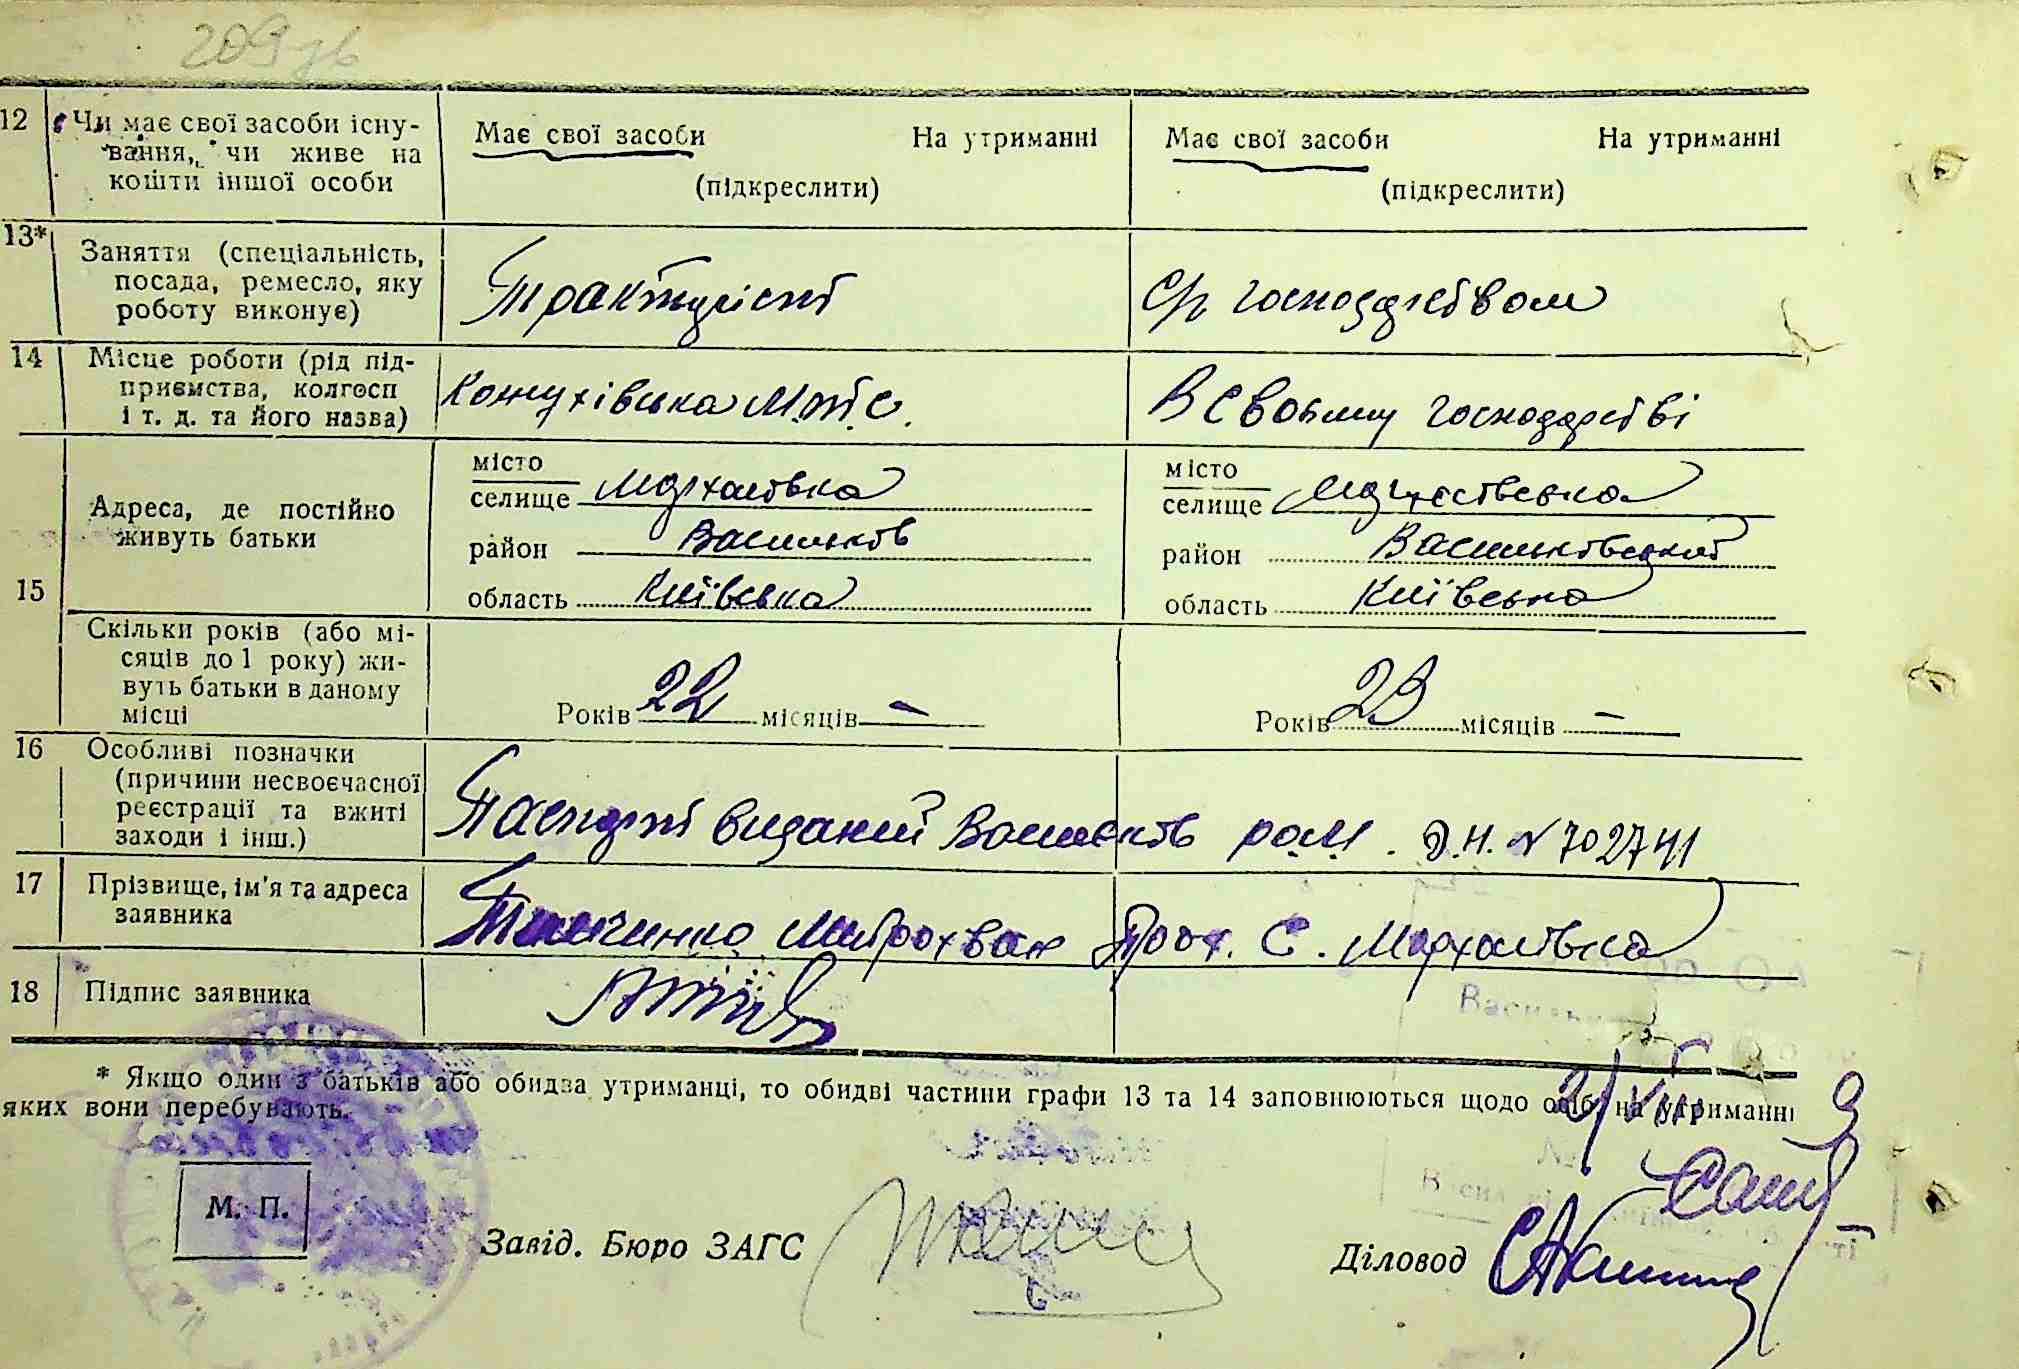 209зв
12 Чи має свої засоби існу-
вання, чи живе на
кошти іншої особи
Має свої засоби На утриманні
(підкреслити)
Має свої засоби На утриманні
(підкреслити)
13* Заняття (спеціальність,
посада, ремесло, яку
роботу виконує)
Тракторист
Ср господарством
14 Місце роботи (рід під-
приємства, колгосп
і т. д. та його назва)
Кожухівська М.Т.С.
В своєму господарстві
15
Адреса, де постійно
живуть батьки
місто
селище Мархалівка
район Васильков
область Київська
місто
селище
район Васильковський
область Київська
Скільки років (або мі-
сяців до 1 року) жи-
вуть батьки в даному
місці
Років 22 місяців —
Років 23 місяців —
16 Особливі позначки
(причини несвоєчасної
реєстрації та вжиті
заходи і інш.)
Паспорт виданий Васильків р.о.м. № 702741
17 Прізвище, ім'я та адреса
заявника
Митрохван Прох. С. Мархалівка
18 Підпис заявника
* Якщо один з батьків або обидва утриманці, то обидві частини графи 13 та 14 заповнюються щодо осіб, на утриманні
яких вони перебувають.
М. П.
Завід. Бюро ЗАГС
Діловод